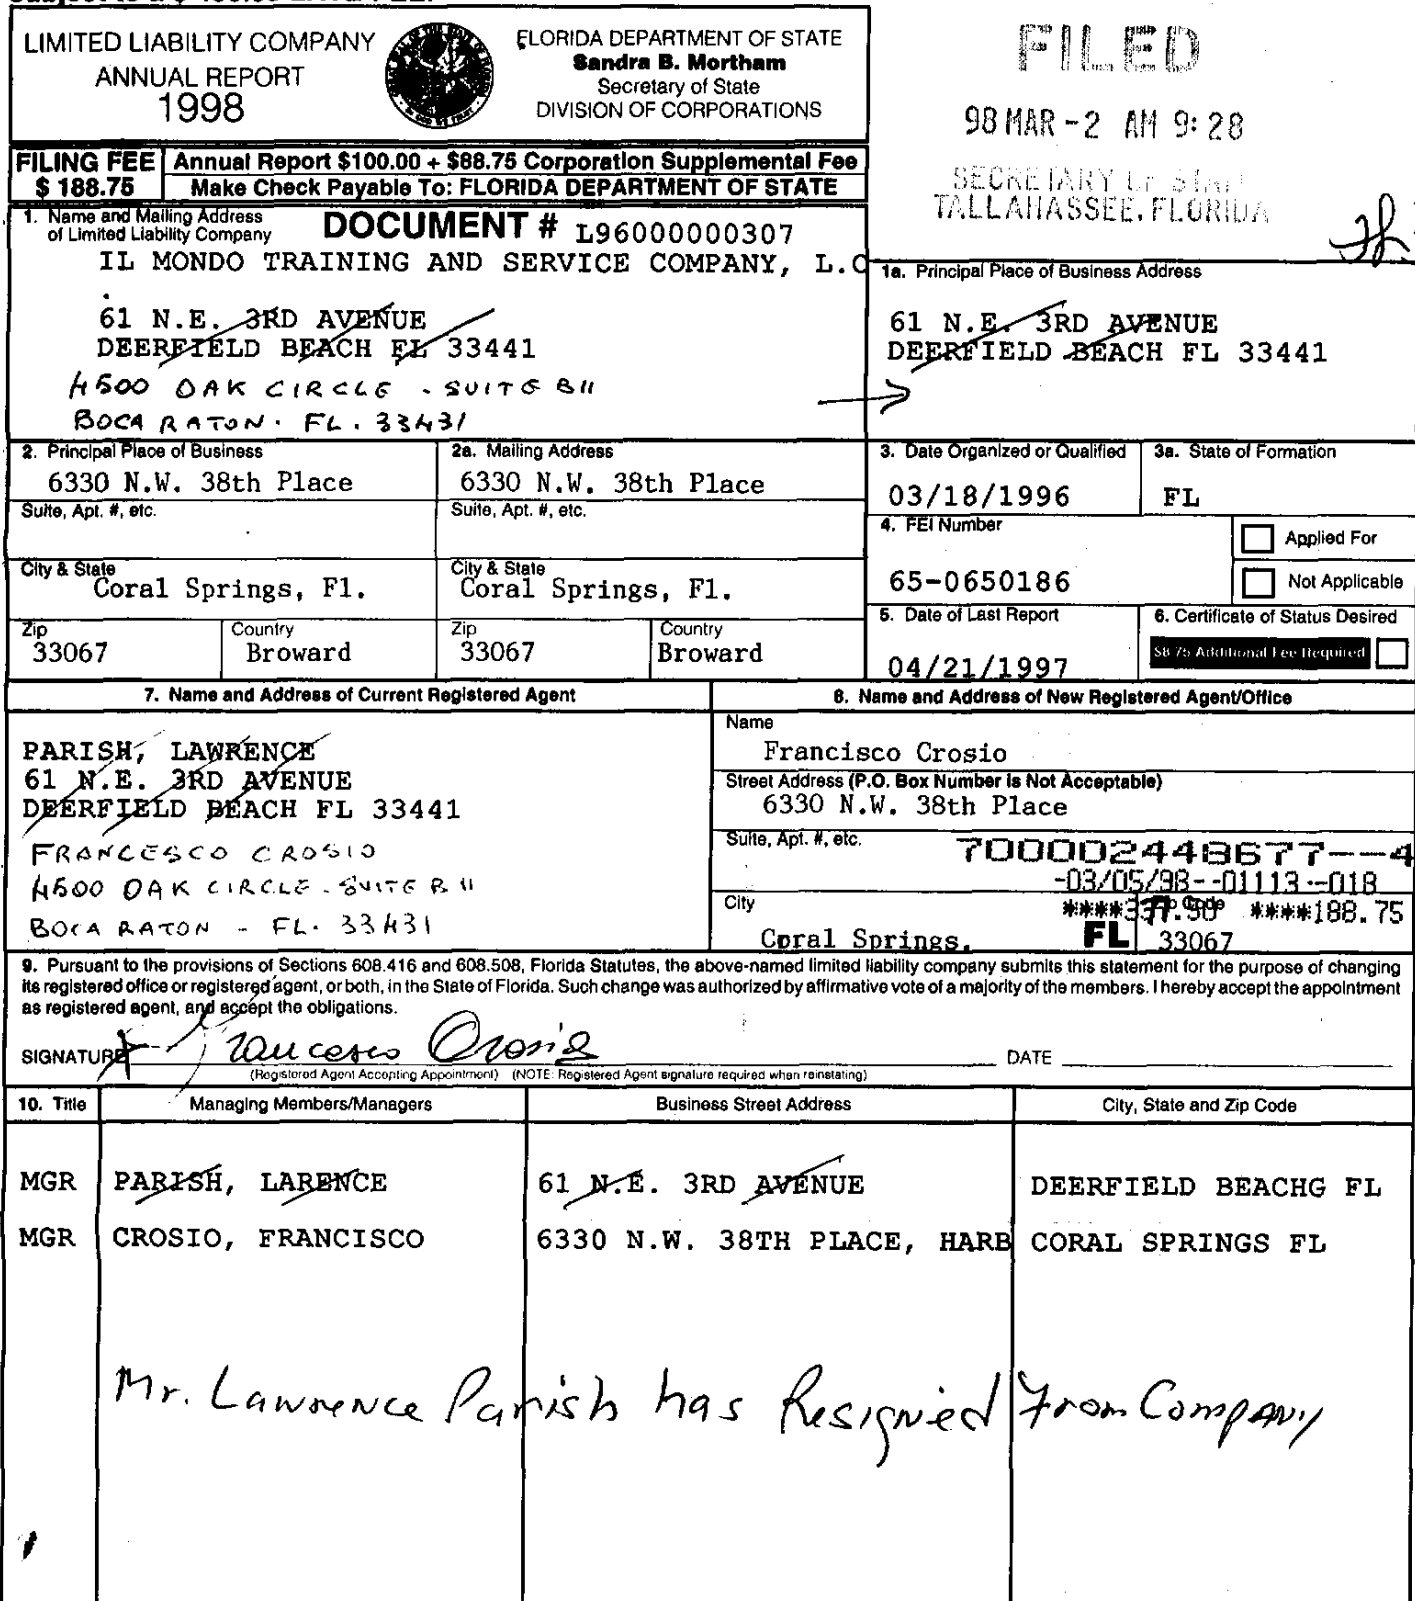 LIMITED LIABILITY COMPANY
ANNUAL REPORT
1998
FLORIDA DEPARTMENT OF STATE
Sandra B. Mortham
Secretary of State
DIVISION OF CORPORATIONS
FILED
98 MAR -2 AM 9:28
SECRETARY OF STATE
TALLAHASSEE, FLORIDA
FILING FEE
$ 188.75
Annual Report $100.00 + $88.75 Corporation Supplemental Fee
Make Check Payable To: FLORIDA DEPARTMENT OF STATE
1. Name and Mailing Address
of Limited Liability Company
DOCUMENT # L96000000307
IL MONDO TRAINING AND SERVICE COMPANY, L.C
.
61 N.E. 3RD AVENUE
DEERFIELD BEACH FL 33441
4500 OAK CIRCLE - SUITE B11
BOCA RATON. FL. 33431
1a. Principal Place of Business Address
61 N.E. 3RD AVENUE
DEERFIELD BEACH FL 33441
2. Principal Place of Business
6330 N.W. 38th Place
Suite, Apt. #, etc.
City & State
Coral Springs, Fl.
Zip
33067
Country
Broward
2a. Mailing Address
6330 N.W. 38th Place
Suite, Apt. #, etc.
City & State
Coral Springs, Fl.
Zip
33067
Country
Broward
3. Date Organized or Qualified
03/18/1996
3a. State of Formation
FL
4. FEI Number
65-0650186
Applied For
Not Applicable
5. Date of Last Report
04/21/1997
6. Certificate of Status Desired
$8.75 Additional Fee Required
7. Name and Address of Current Registered Agent
PARISH, LAWRENCE
61 N.E. 3RD AVENUE
DEERFIELD BEACH FL 33441
FRANCESCO CROSIO
4500 OAK CIRCLE - SUITE B 11
BOCA RATON - FL. 33431
8. Name and Address of New Registered Agent/Office
Name
Francisco Crosio
Street Address (P.O. Box Number is Not Acceptable)
6330 N.W. 38th Place
Suite, Apt. #, etc.
700002448677--4
-03/05/98--01113--018
****188.75
City
Coral Springs,
FL
Zip Code
33067
9. Pursuant to the provisions of Sections 608.416 and 608.508, Florida Statutes, the above-named limited liability company submits this statement for the purpose of changing
its registered office or registered agent, or both, in the State of Florida. Such change was authorized by affirmative vote of a majority of the members. I hereby accept the appointment
as registered agent, and accept the obligations.
SIGNATURE Francesco Crosio
DATE
(Registered Agent Accepting Appointment) (NOTE: Registered Agent signature required when reinstating)
10. Title
Managing Members/Managers
Business Street Address
City, State and Zip Code
MGR PARISH, LARENCE 61 N.E. 3RD AVENUE DEERFIELD BEACHG FL
MGR CROSIO, FRANCISCO 6330 N.W. 38TH PLACE, HARB CORAL SPRINGS FL
Mr. Lawrence Parish has Resigned From Company